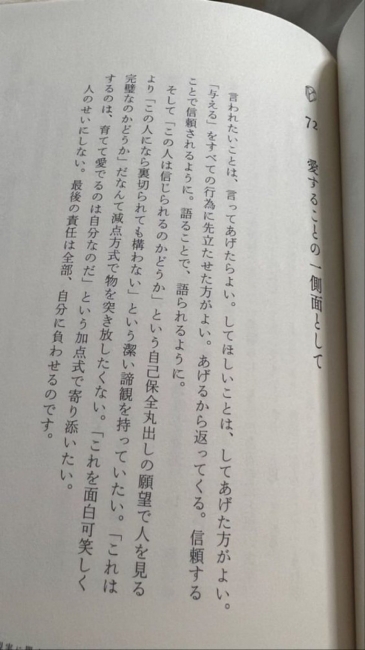 72
愛することの一側面として
言われたいことは、言ってあげたらよい。してほしいことは、してあげた方がよい。
「与える」をすべての行為に先立たせた方がよい。あげるから返ってくる。信頼する
ことで信頼されるように。語ることで、語られるように。
そして「この人は信じられるのかどうか」という自己保全丸出しの願望で人を見る
より「この人になら裏切られても構わない」という潔い諦観を持っていたい。「これは
完璧なのかどうか」だなんて減点方式で物を突き放したくない。「これを面白可笑しく
するのは、育てて愛でるのは自分なのだ」という加点式で寄り添いたい。
人のせいにしない。最後の責任は全部、自分に負わせるのです。